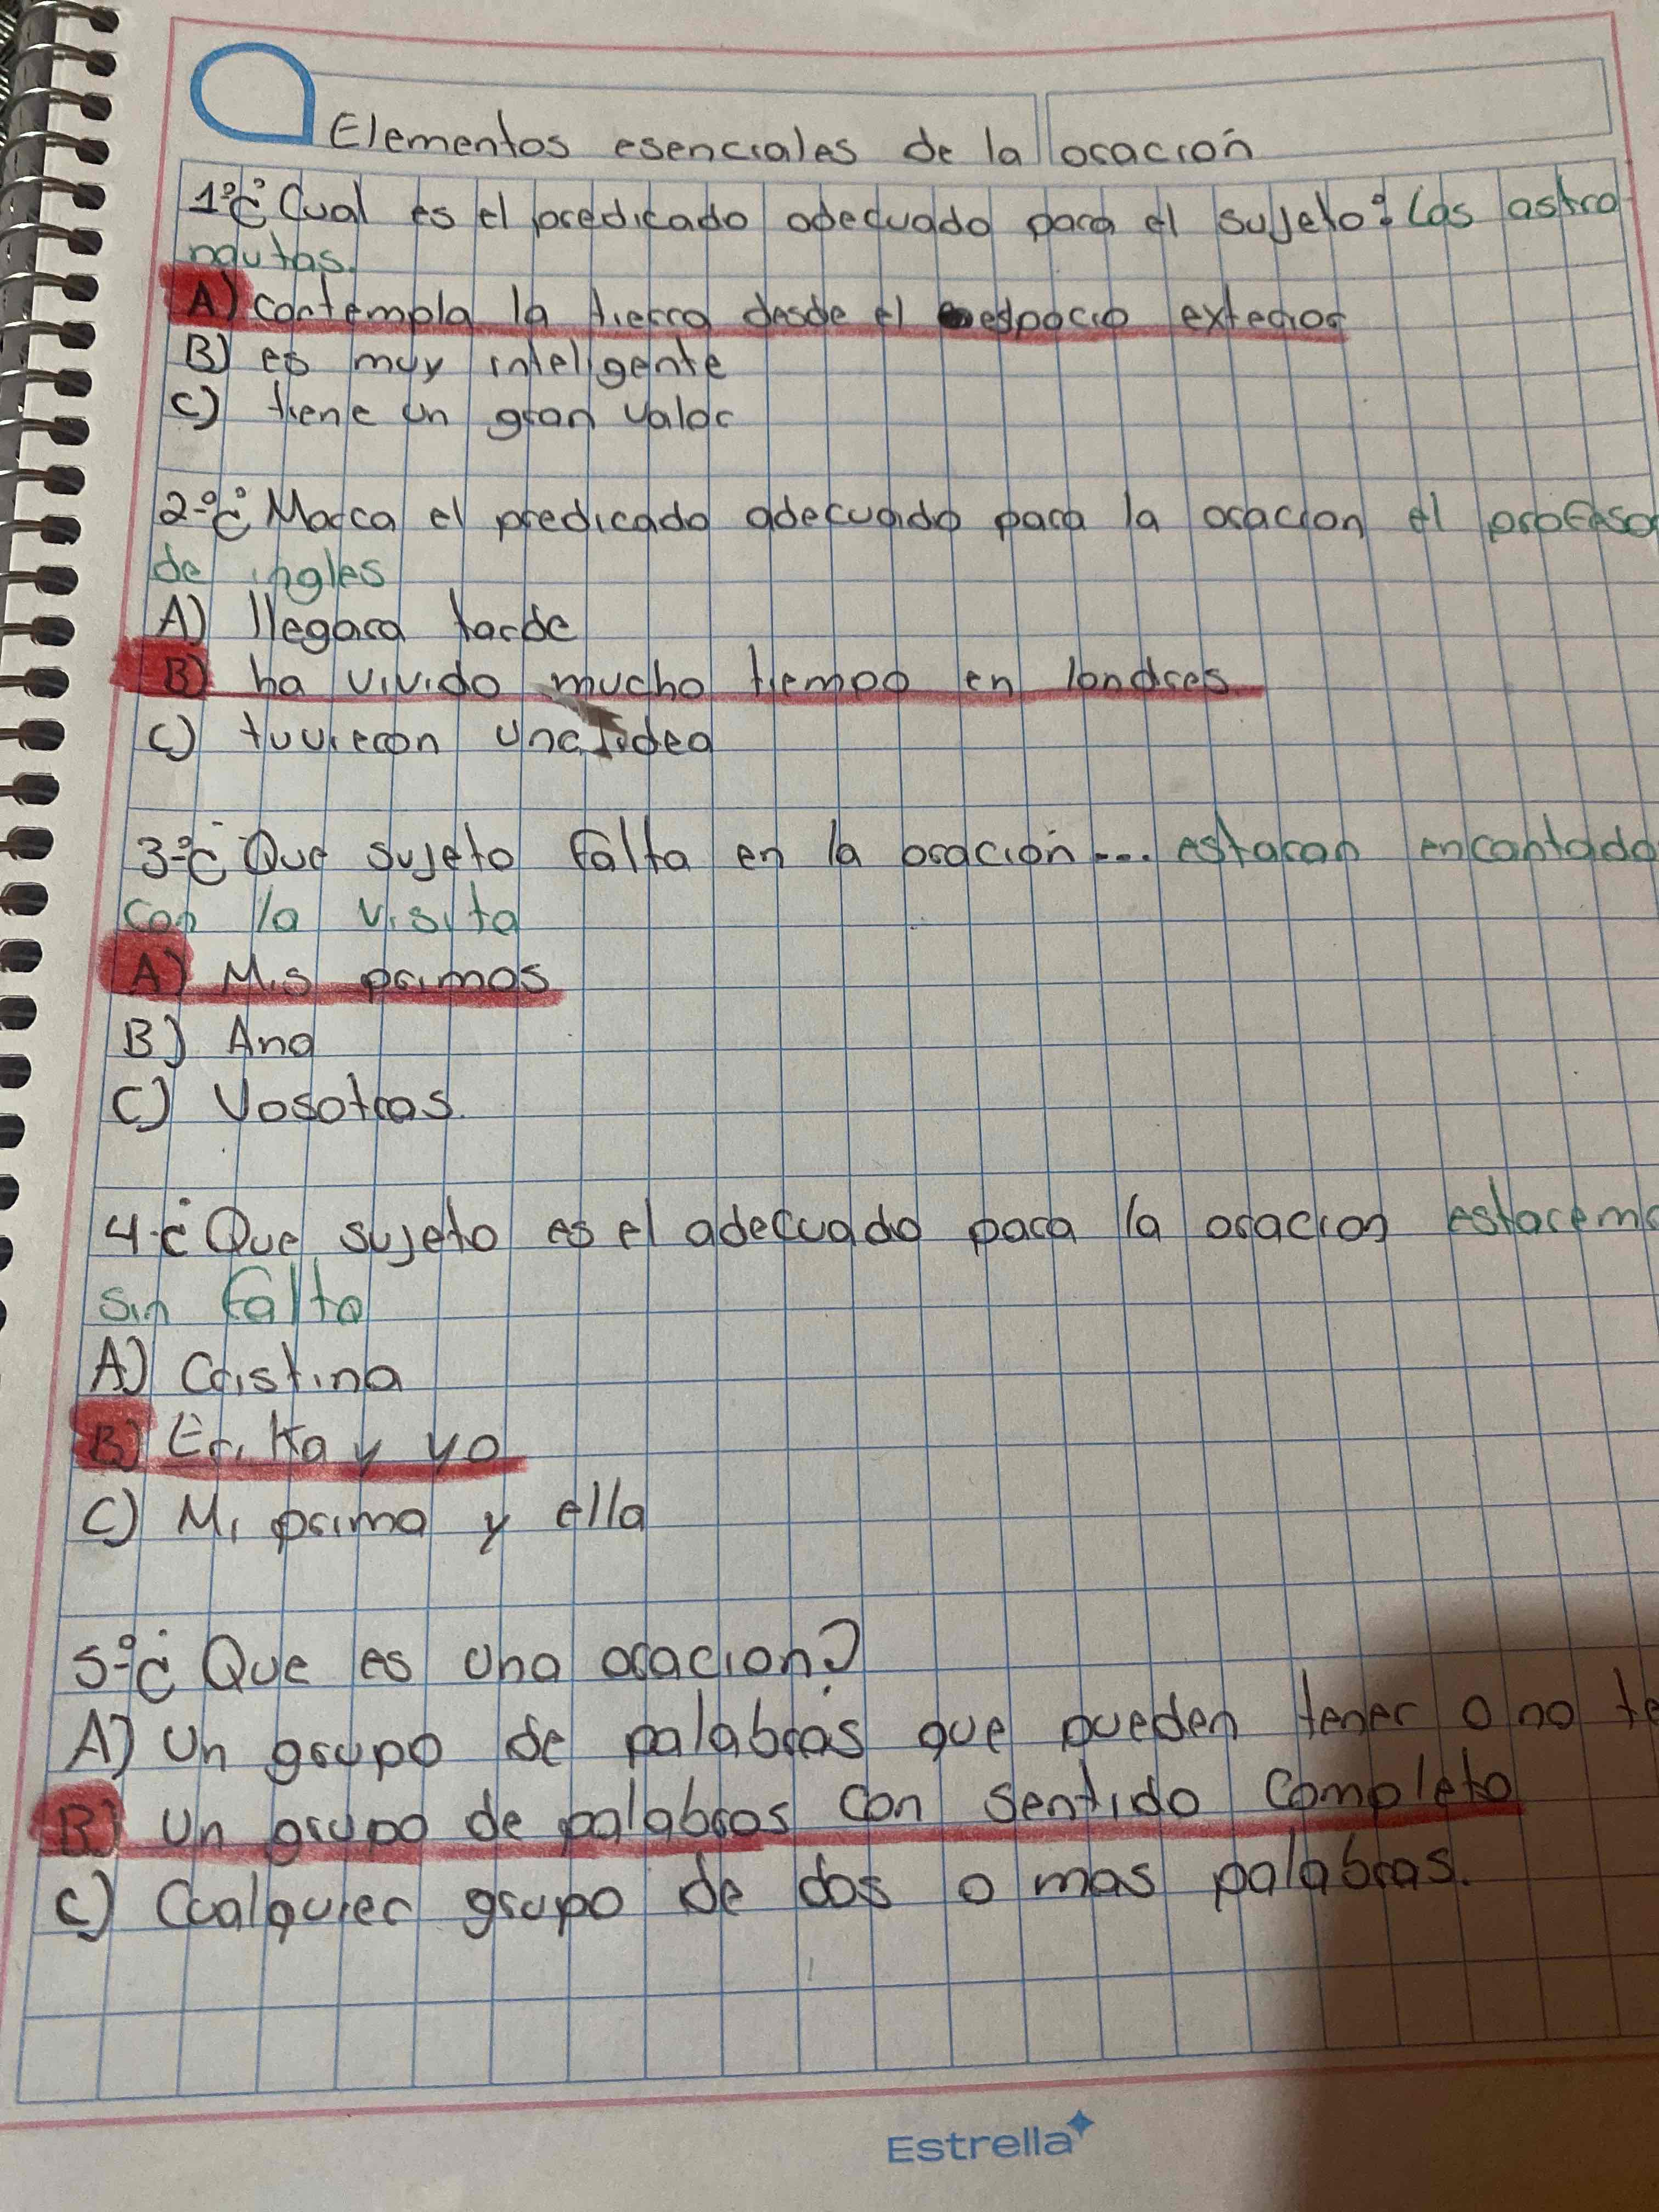 Elementos esenciales de la oración
1º¿ Cual es el predicado adecuado para el sujeto: Los astro
nautas.
A) contempla la tierra desde el espacio exterior
B) es muy inteligente
C) tiene un gran valor
2-º¿ Marca el predicado adecuado para la oracion el profesor
de ingles
A) llegara tarde
B) ha vivido mucho tiempo en londres.
C) tuvieron una idea
3-º¿ Que sujeto falta en la oración... estaran encantado
con la visita
A) Mis primos
B) Ana
C) Vosotros.
4-¿ Que sujeto es el adecuado para la oracion estaremo
sin falta
A) Cristina
B) Erika y yo
C) Mi prima y ella
5-º¿ Que es una oracion?
A) Un grupo de palabras que pueden tener o no te
B) Un grupo de palabras con sentido completo
C) Cualquier grupo de dos o mas palabras.
Estrella